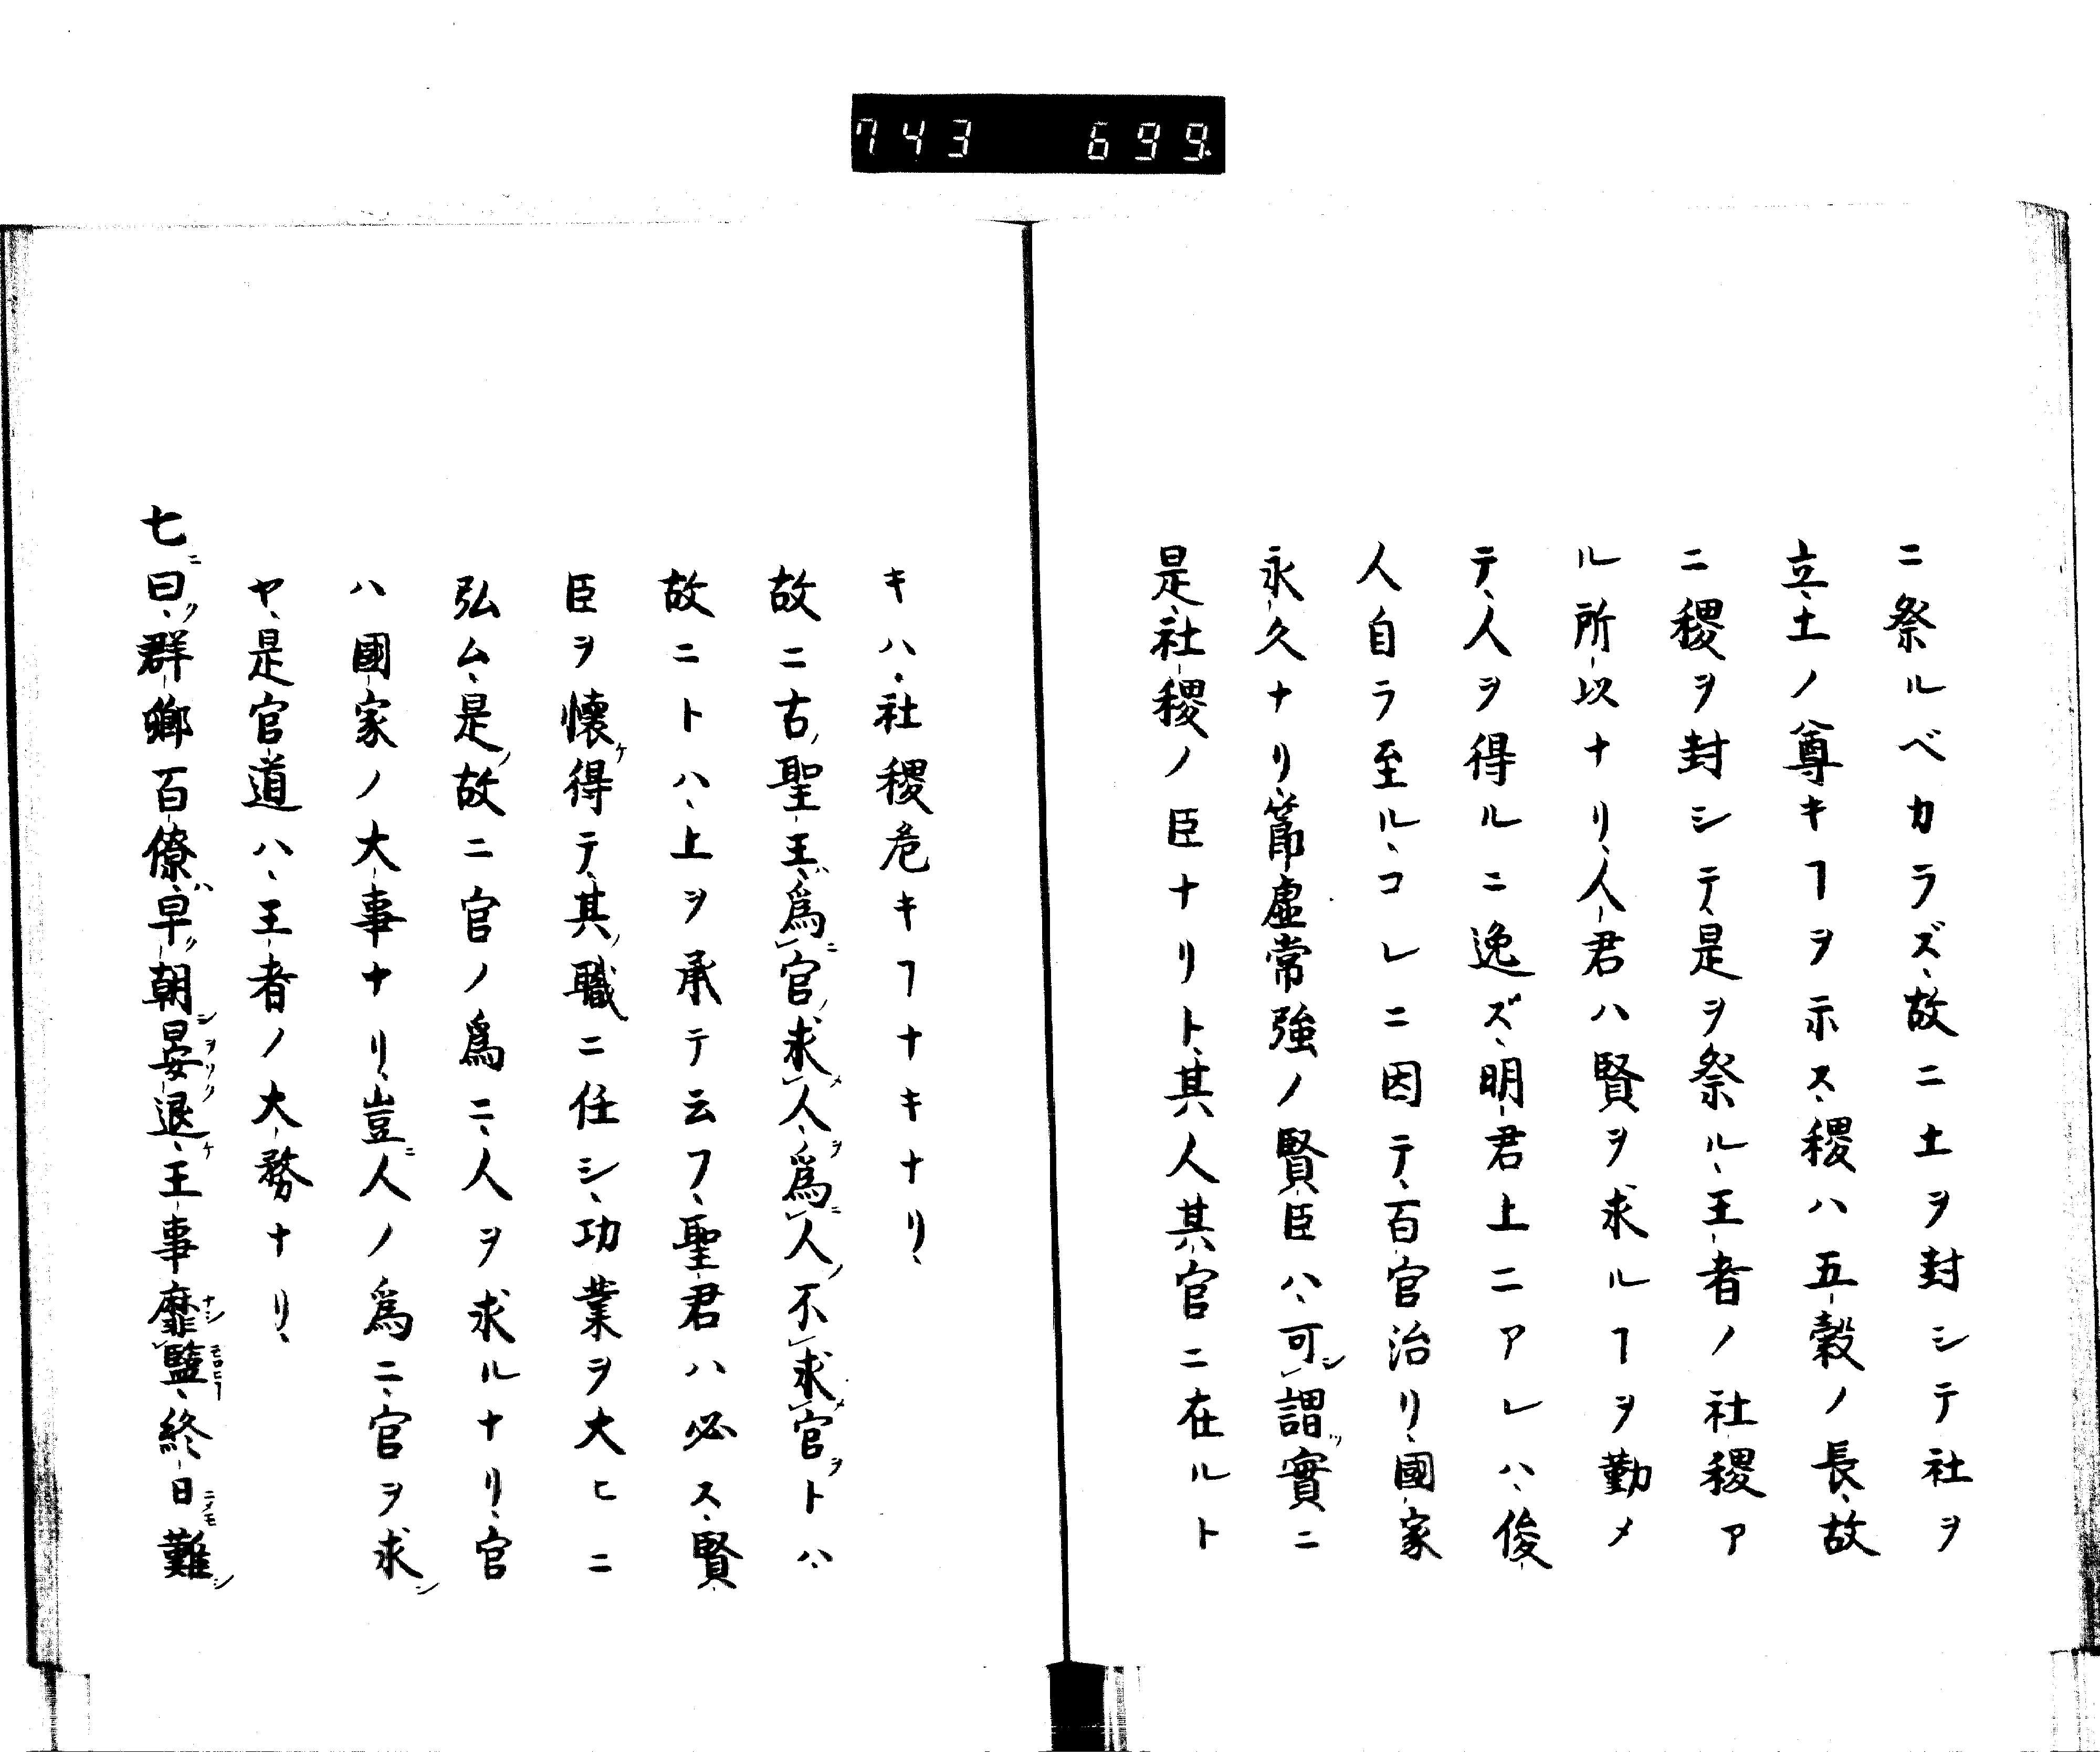 743 699
ニ祭ルベカラズ、故ニ土ヲ封シテ社ヲ
立、土ノ尊キヿヲ示ス、稷ハ五穀ノ長、故
ニ稷ヲ封シテ、是ヲ祭ル、王者ノ社稷ア
ル所以ナリ、人君ハ賢ヲ求ルヿヲ勤メ
テ、人ヲ得ルニ逸ズ、明君上ニアレハ、俊
人自ラ至ル、コレニ因テ、百官治リ、國家
永久ナリ、節虛常強ノ賢臣ハ、可謂實ニ
是社稷ノ臣ナリト、其人其官ニ在ルト
キハ、社稷危キヿナキナリ、
故ニ古ノ聖王ハ、爲ニ官ノ求メ人ヲ、爲ニ人ノ不求メ官ヲトハ、
故ニトハ、上ヲ承テ云フ、聖君ハ必ス、賢
臣ヲ懷ケ得テ、其ノ職ニ任シ、功業ヲ大ヒニ
弘ム、是ノ故ニ官ノ爲ニ、人ヲ求ルナリ、官
ハ國家ノ大事ナリ、豈ニ人ノ爲ニ、官ヲ求シ
ヤ、是官道ハ、王者ノ大務ナリ、
七ニ曰ク、群卿百僚ハ、早ク朝シ晏ヲソク退ケ、王事靡ナシ盬モロヒヿ、終日ニメモ難シ